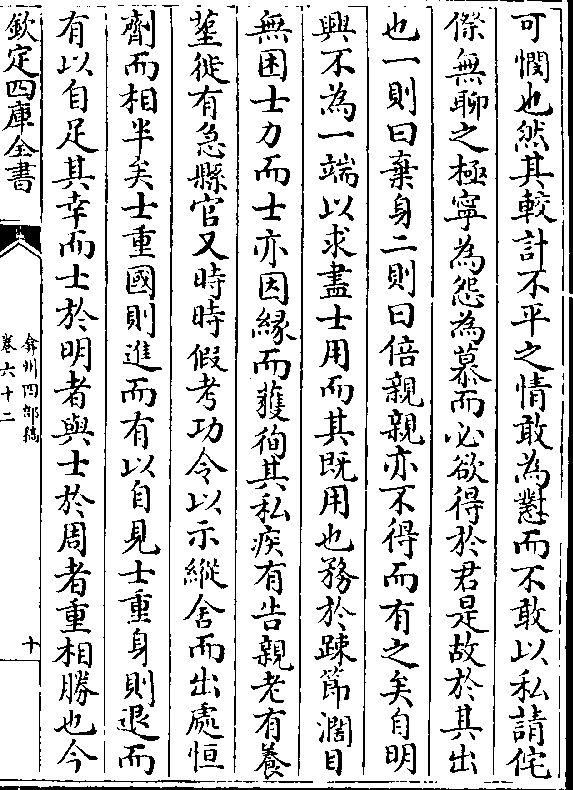 可憫也然其較計不平之情敢為懟而不敢以私請侘
傺無聊之極寧為怨為慕而必欲得於君是故於其出
也一則曰棄身二則曰倍親親亦不得而有之矣自明
興不為一端以求盡士用而其既用也務於踈節濶目
無困士力而士亦因緣而獲徇其私疾有告親老有養
塟徙有急縣官又時時假考功令以示縱舍而出處恒
劑而相半矣士重國則進而有以自見士重身則退而
有以自足其幸而士於明者與士於周者重相勝也今
欽定四庫全書
弇州四部稿
卷六十二
十